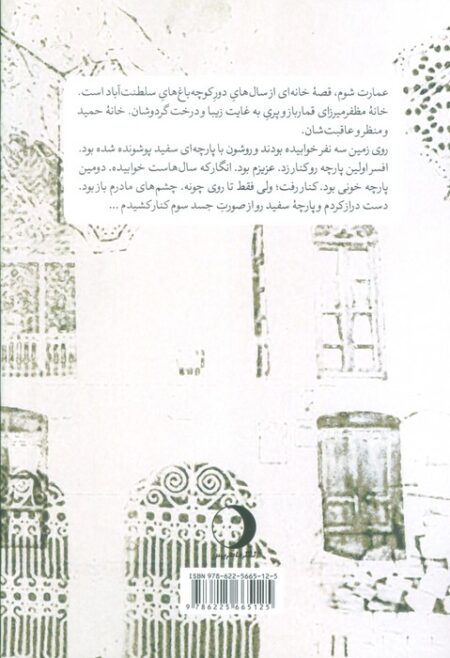 عمارت شوم، قصهٔ خانه‌ای از سال‌هایِ دورِ کوچه‌باغ‌هایِ سلطنت‌آباد است.
خانهٔ مظفرمیرزای قمارباز و پریِ به غایت زیبا و درخت گردوشان. خانهٔ حمید
و منظر و عاقبت‌شان.
روی زمین سه نفر خوابیده بودند و روشون با پارچه‌ای سفید پوشونده شده بود.
افسر اولین پارچه رو کنار زد. عزیزم بود. انگار که سال‌هاست خوابیده. دومین
پارچه خونی بود. کنار رفت؛ ولی فقط تا روی چونه. چشم‌های مادرم باز بود.
دست دراز کردم و پارچهٔ سفید رو از صورتِ جسد سوم کنار کشیدم ...
ISBN 978-622-5665-12-5
9 786225 665125